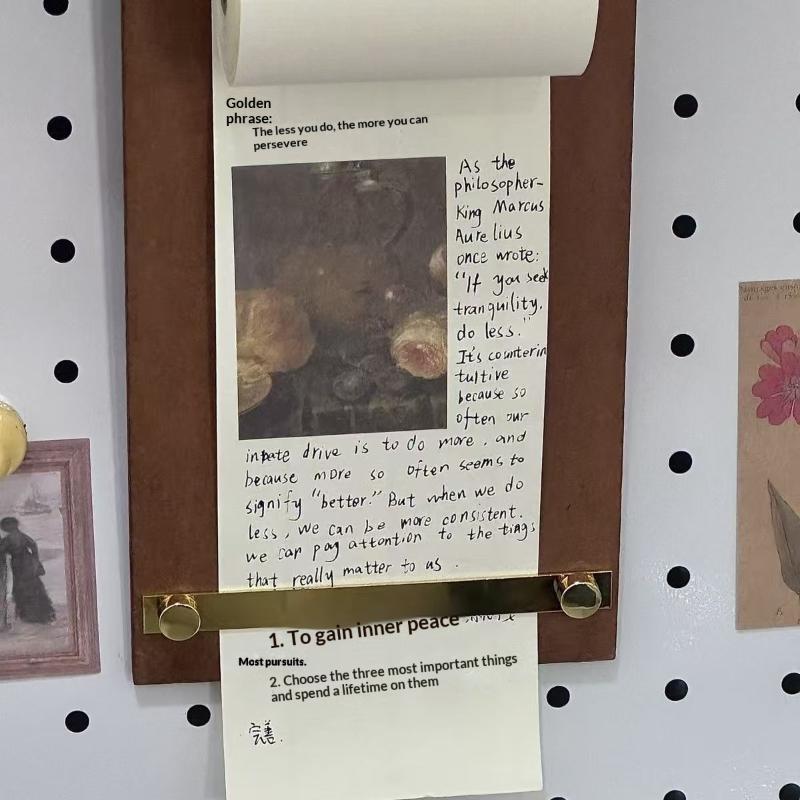 Golden
phrase:
The less you do, the more you can
persevere
As the
philosopher-
King Marcus
Aurelius
once wrote:
"If you seek
tranquility.
do less."
It's counterin
tuitive
because so
often our
innate drive is to do more, and
because more so often seems to
signify "better." But when we do
less, we can be more consistent.
we can pay attention to the tings
that really matter to us.
1. To gain inner peace
Most pursuits.
2. Choose the three most important things
and spend a lifetime on them